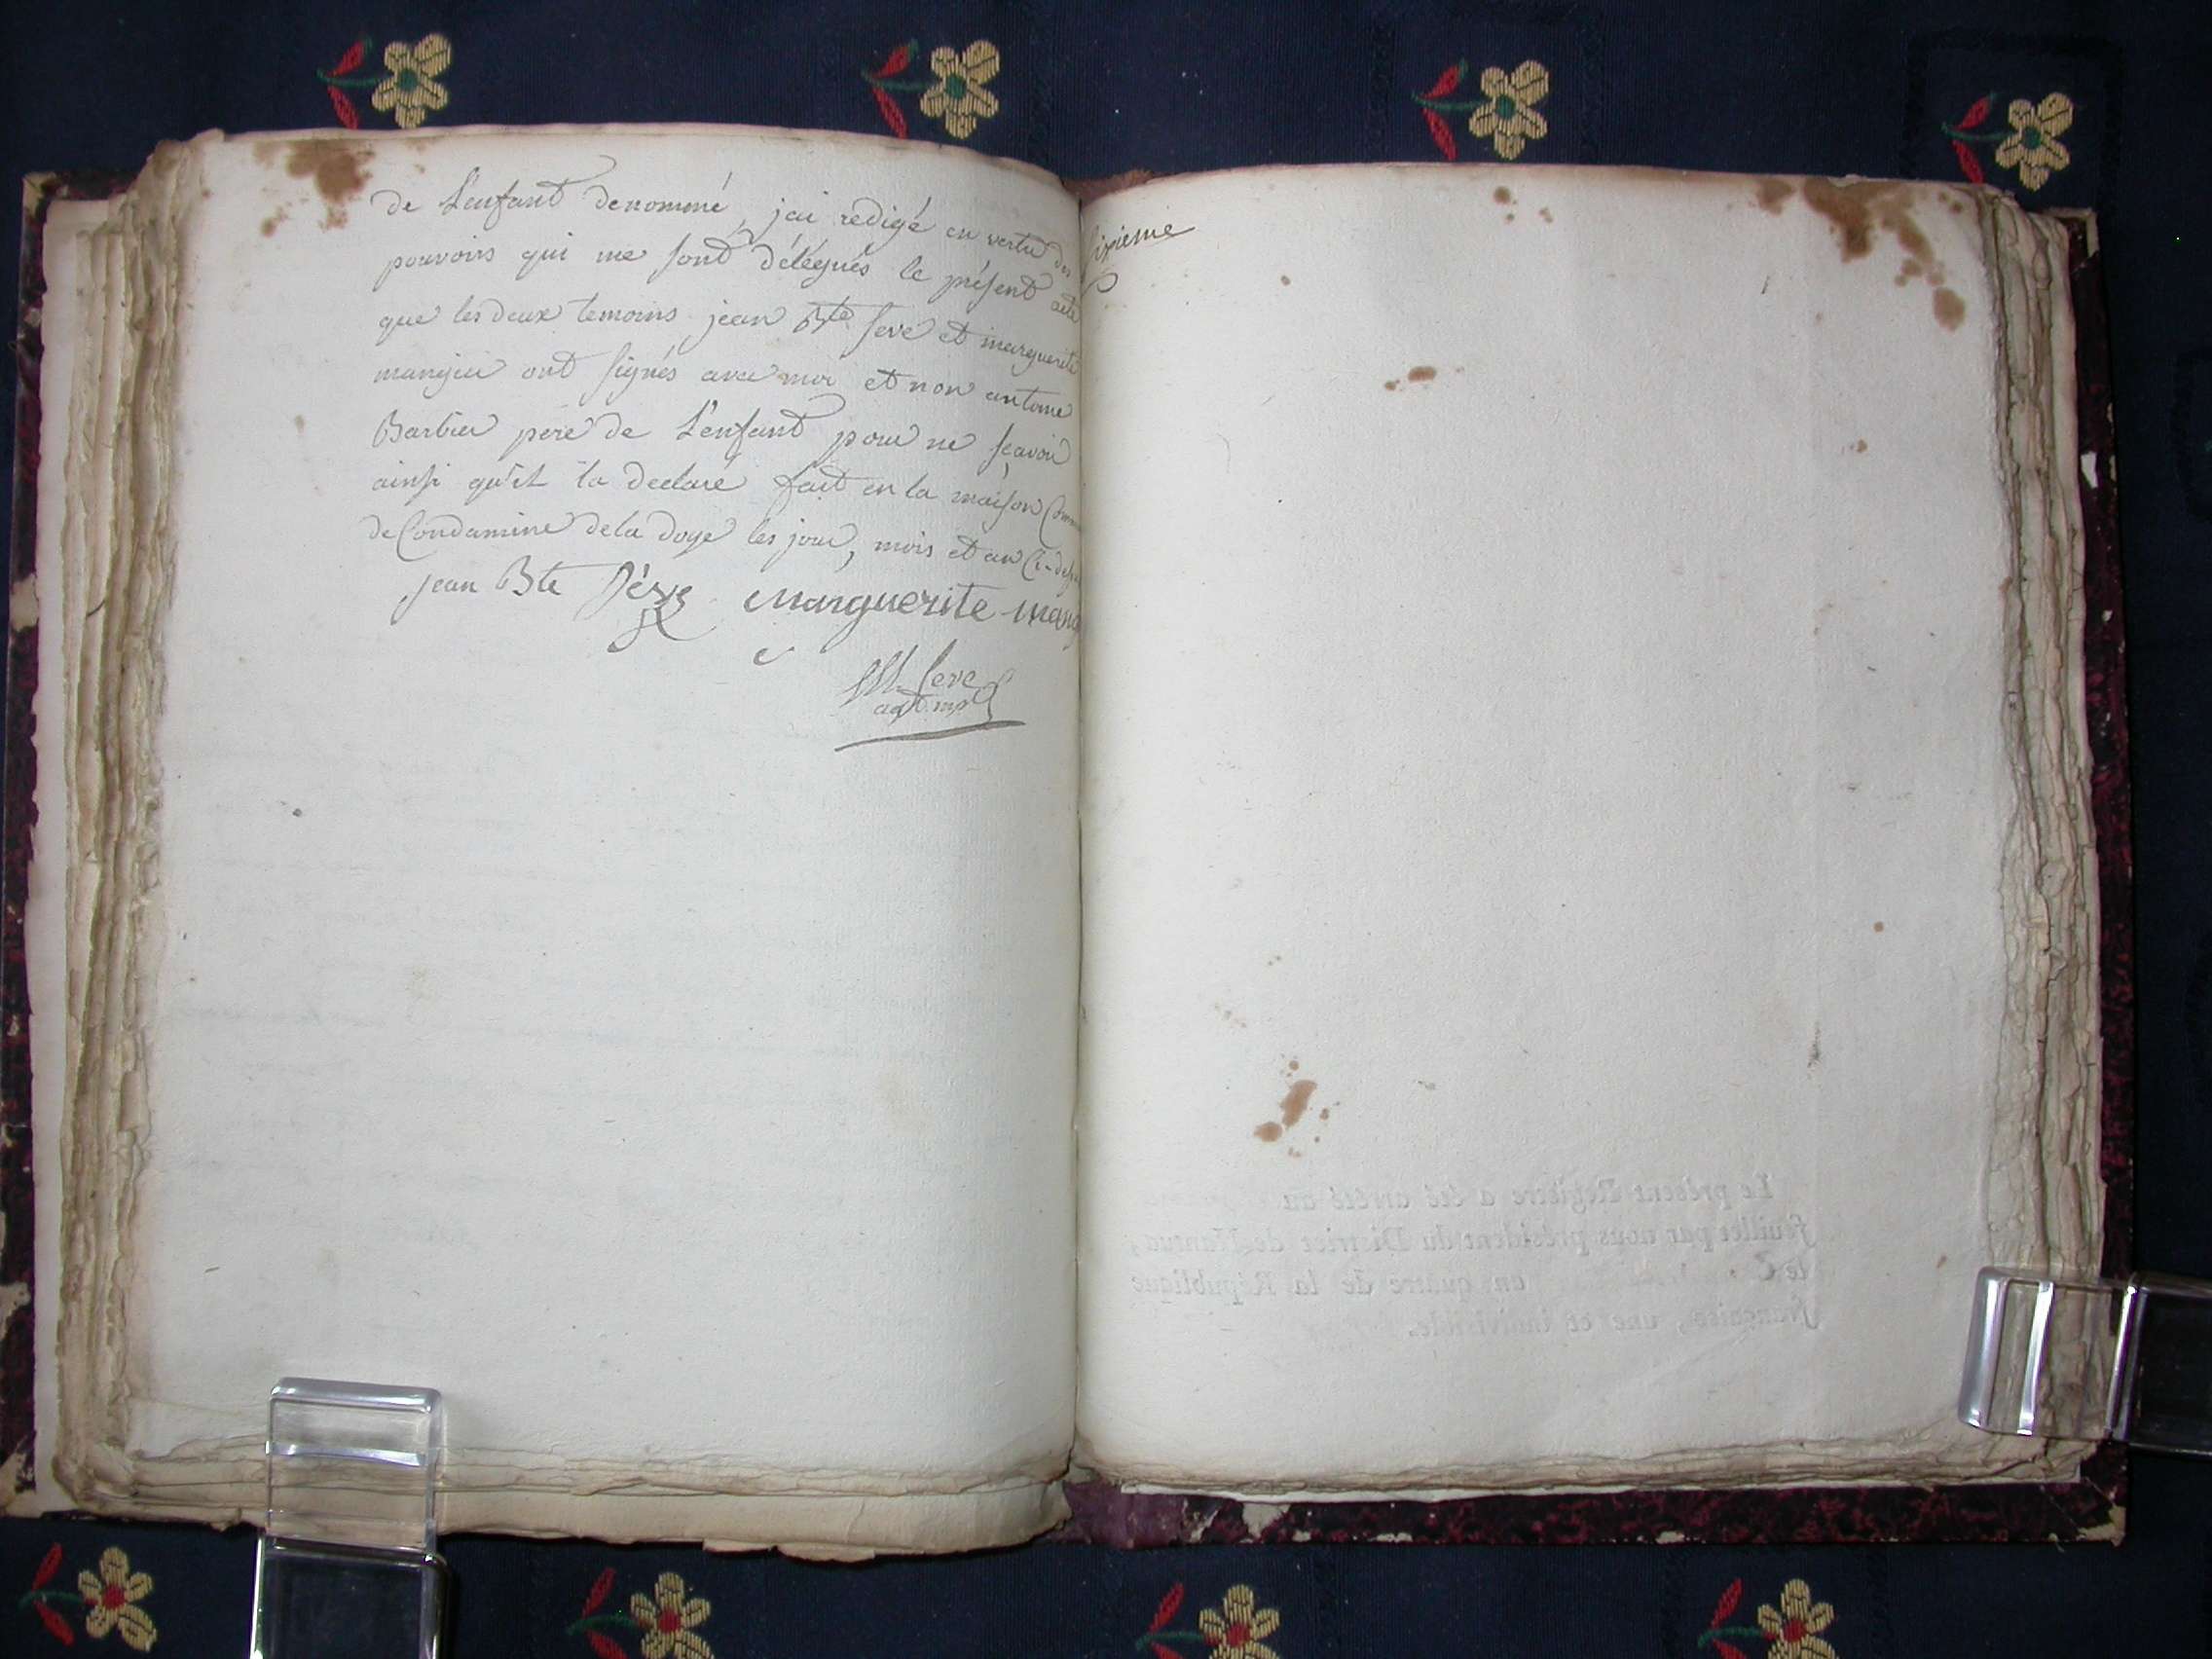 de L'enfant denommé, jai redigé en vertu des
pouvoirs qui me sont délégués le présent acte
que les deux temoins jean Bte seve et marguerite
mangier ont signés avec moi et non antoine
Barbier pere de L'enfant pour ne sçavoir
ainsi qu'il la declaré fait en la maison
de Condamine de la doye les jour, mois et an Ci-dessus
jean Bte Sève marguerite
seve
agt. mpl
sixieme
Le présent Registre a été arrêté au
feuillet par nous président du District de Nantua,
le an quatre de la République
françoise, une et indivisible.